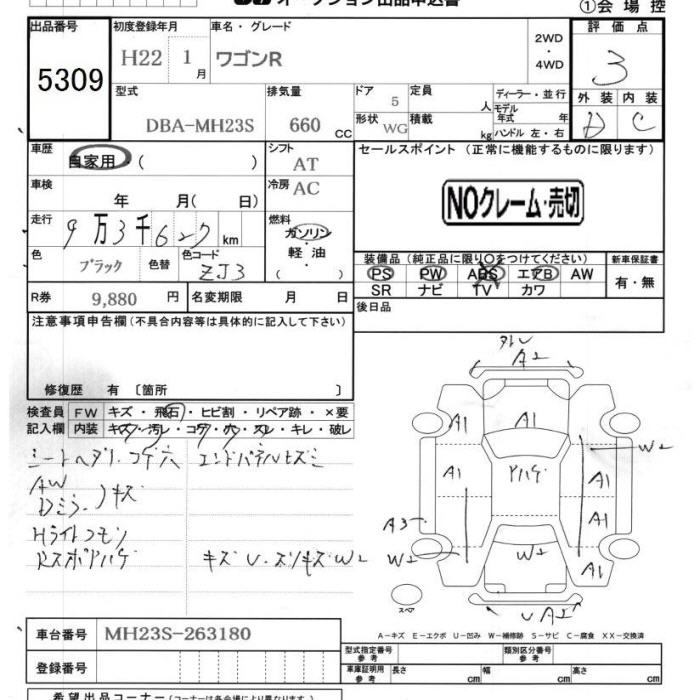 オークション出品申込書
①会場控
出品番号
5309
初度登録年月
H22 1月
車名・グレード
ワゴンR
2WD
・
4WD
評価点
3
外装 内装
D C
型式
DBA-MH23S
排気量
660 CC
ドア
5
形状 WG
定員
人
積載
kg
ディーラー・並行
モデル年式 年
ハンドル 左・右
車歴
自家用・( )
シフト
AT
車検
年 月( 日)
冷房 AC
セールスポイント (正常に機能するものに限ります)
NOクレーム・売切
走行
9万3千627km
燃料
ガソリン
・
軽油
( )
色
ブラック
色替
色コード
ZJ3
装備品(純正品に限り○をつけてください)
PS PW ABS エアB AW
SR ナビ TV カワ
新車保証書
有・無
R券 9,880 円
名変期限 月 日
後日品
注意事項申告欄(不具合内容等は具体的に記入して下さい)
修復歴 有〔箇所 〕
検査員
記入欄
FW キズ・飛石・ヒビ割・リペア跡・×要
内装 キズ・汚レ・コゲ・穴・スレ・キレ・破レ
シートヘタリ.コゲ穴 エンドパネルヒズミ
AW
Dミラー キズ
Hライトクモリ
RスポAハゲ
キズ U. W2
外し
A2
A1
A1
W2
A1
Yハゲ
A1
A1
A3
W2
W2
A1
スペア
UA2
A-キズ E-エクボ U-凹み W-補修跡 S-サビ C-腐食 XX-交換済
車台番号 MH23S-263180
登録番号
型式指定番号
参考
類別区分番号
参考
車庫証明用
参考
長さ cm 幅 cm 高さ cm
希望出品コーナー(コーナーは各会場により異なります。)